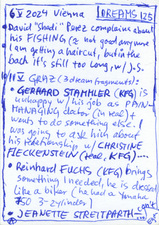 6 V 2024 Vienna DREAMS 125
• David "Studi" Perez complains about
his FISHING (2 not good anymore
I am getting a haircut, but in the
back it's still too long, w/J.S.
• 11 V GRAZ (3 dream fragments):
• GERHARD STAMMLER (KFG) is
unhappy with his job as PAIN/
MANAGING doctor (in Graz) +
wants to do something else. I
was going to ask him about
his relationship w/ CHRISTINE
FLECKENSTEIN (head, KFG)
• Reinhard FUCHS (KFG) brings
something I needed, he is dressed
like a biker (he had a Yamaha
750 3-zylinder)
• JEANETTE STREITPARTH